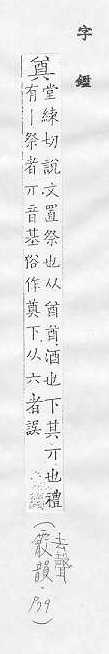 字鑑
奠
堂練切說文置祭也从酋酋酒也下其丌也禮
有丨祭者丌音基俗作奠下从六者誤
(去聲
霰韻．P39)